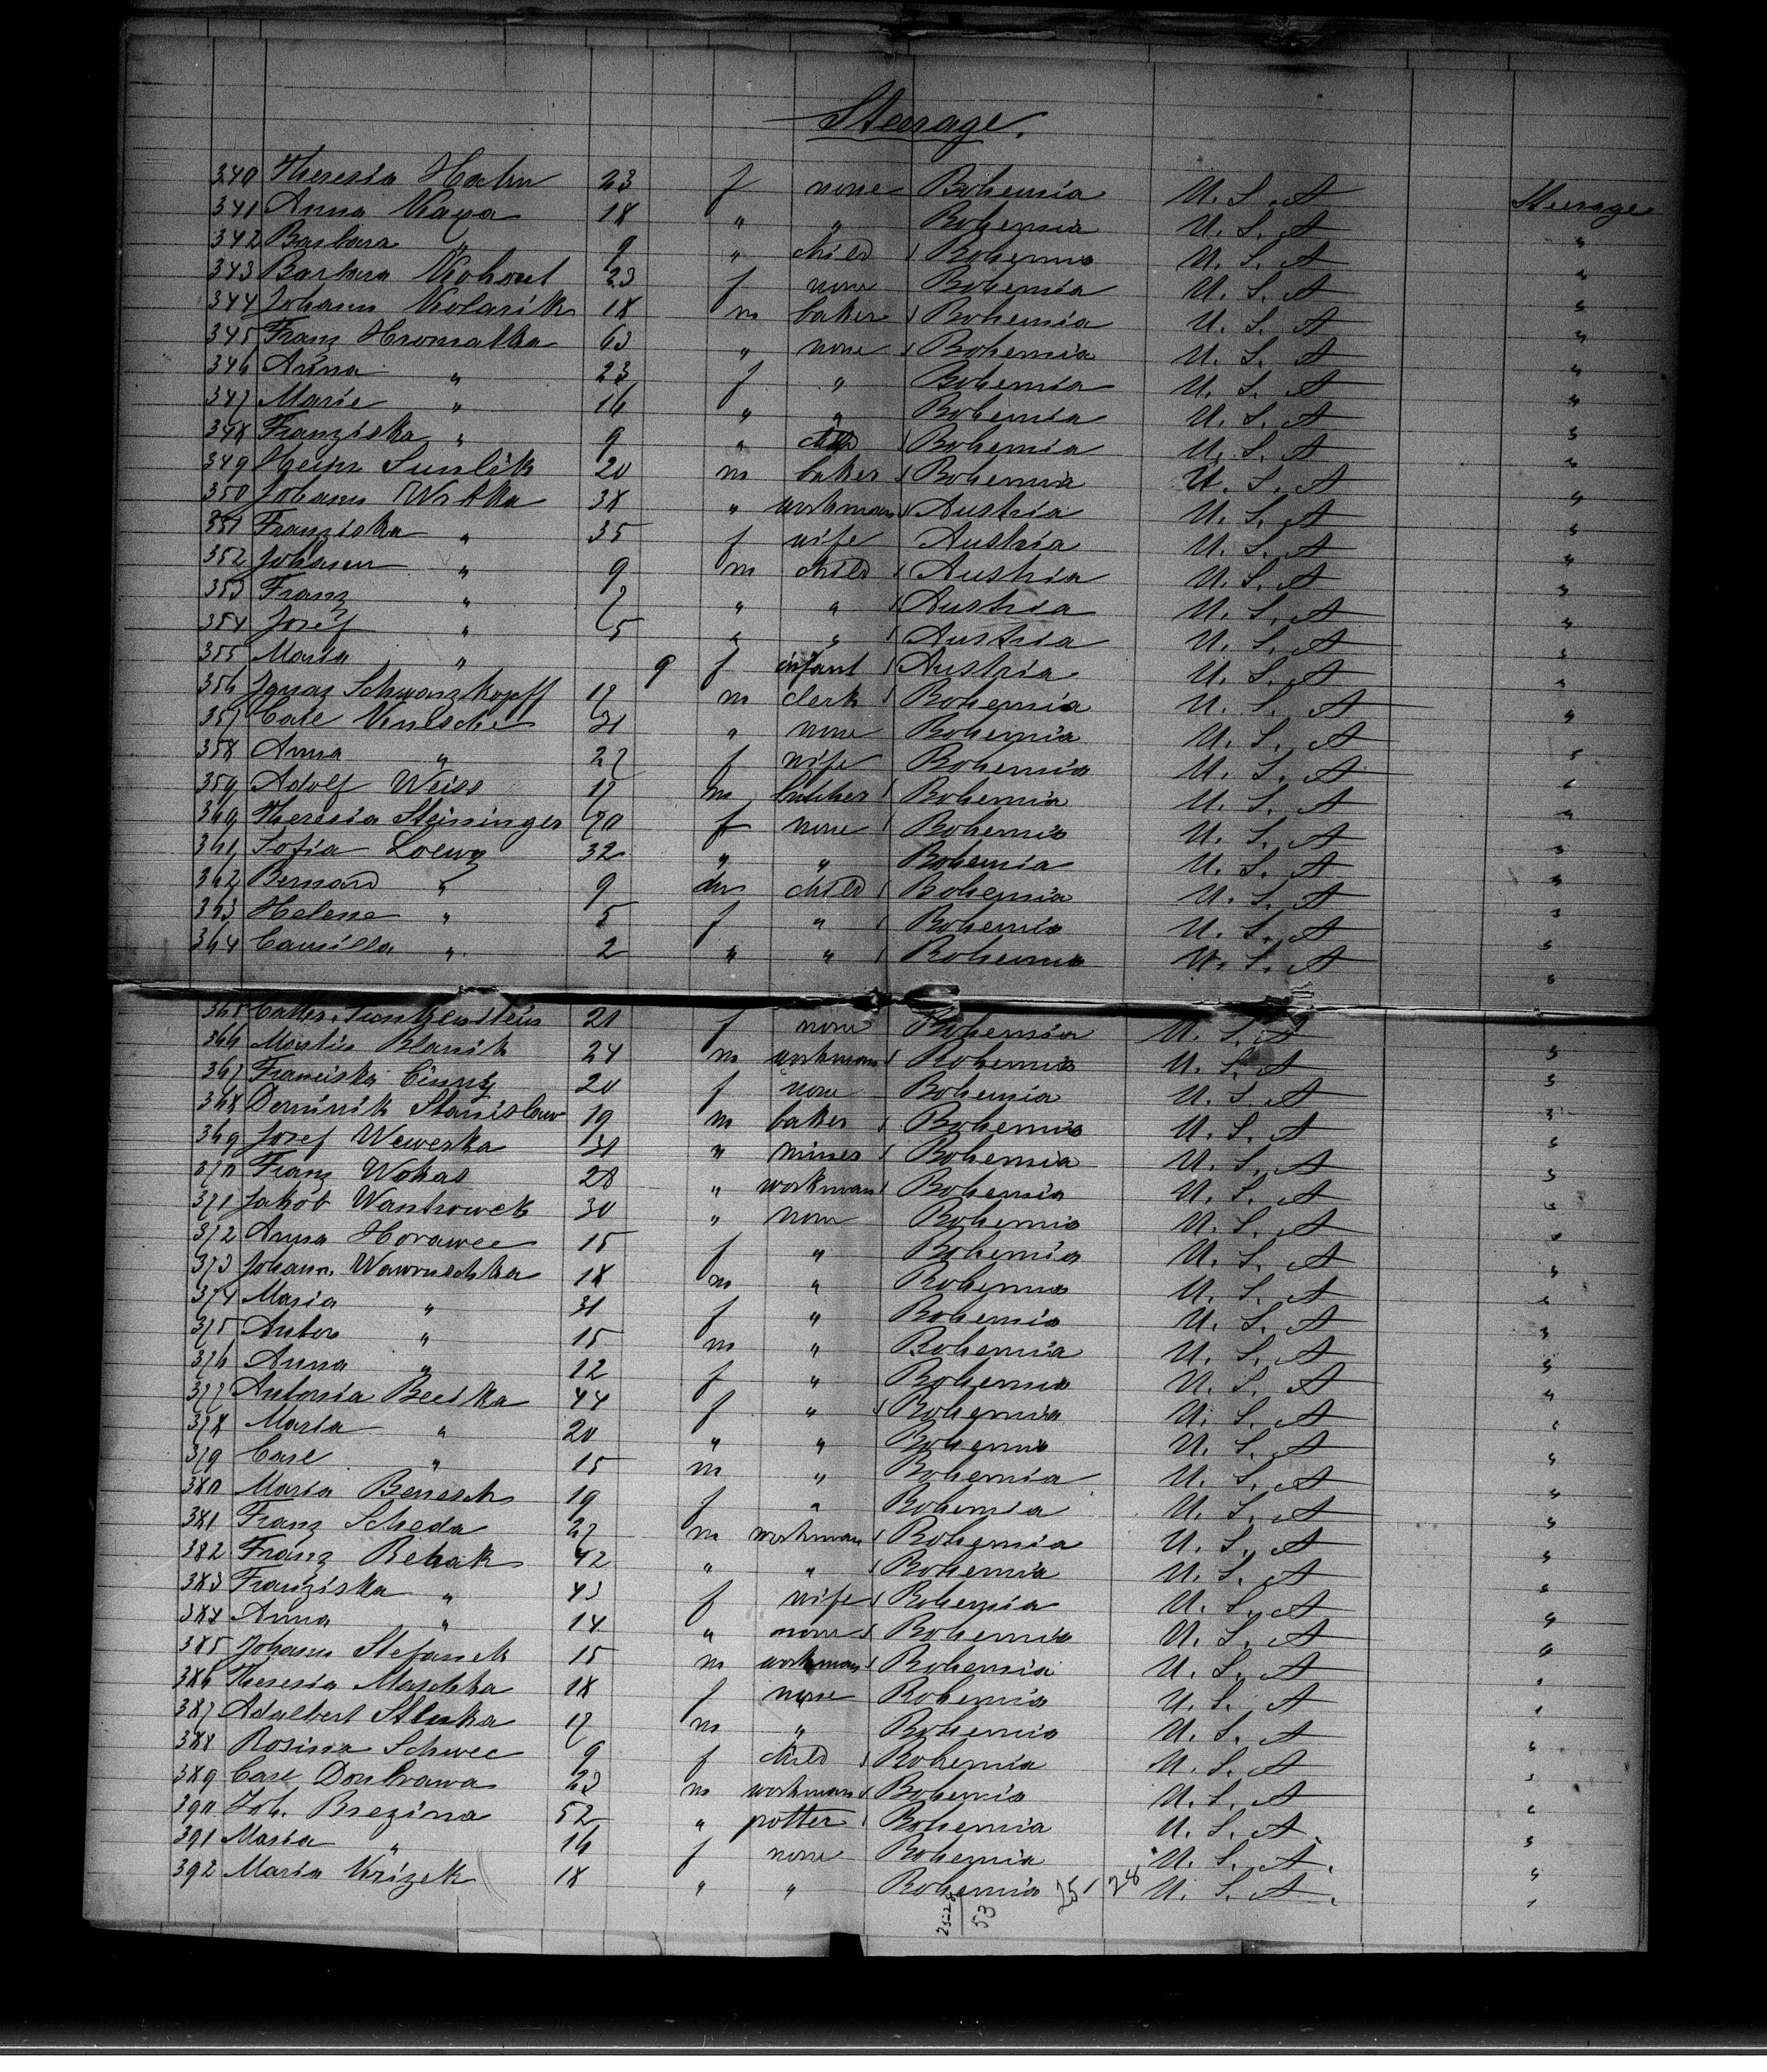 Steerage.
340 Theresia Hahn 23 f none Bohemia U. S. A Steerage
341 Anna Kaya 18 " " Bohemia U. S. A "
342 Barbara " 9 " child Bohemia U. S. A "
343 Barbara Kohout 23 f none Bohemia U. S. A "
344 Johann Kolarik 18 m baker Bohemia U. S. A "
345 Franz Hromatka 63 " none Bohemia U. S. A "
346 Anna " 23 f " Bohemia U. S. A "
347 Marie " 16 " " Bohemia U. S. A "
348 Franziska " 9 " child Bohemia U. S. A "
349 Heinr. 20 m baker Bohemia U. S. A "
350 Johann Wrtka 38 " workman Austria U. S. A "
351 Franziska " 35 f wife Austria U. S. A "
352 Johann " 9 m child Austria U. S. A "
353 Franz " 7 " " Austria U. S. A "
354 Josef " 5 " " Austria U. S. A "
355 Maria " 9 f infant Austria U. S. A "
356 Ignaz Schwarzkopff 17 m clerk Bohemia U. S. A "
357 Carl 31 " none Bohemia U. S. A "
358 Anna " 27 f wife Bohemia U. S. A "
359 Adolf Weiss 17 m butcher Bohemia U. S. A "
360 Theresia Steininger 70 f none Bohemia U. S. A "
361 Sofia Loewy 32 " " Bohemia U. S. A "
362 Bernard " 9 m child Bohemia U. S. A "
363 Helene " 5 f " Bohemia U. S. A "
364 Camilla " 2 " " Bohemia U. S. A "
365 Cath. 21 f none Bohemia U. S. A
366 Martin Blasik 24 m workman Bohemia U. S. A "
367 Franciska 20 f none Bohemia U. S. A "
368 Dominik Stanislaw 19 m baker Bohemia U. S. A "
369 Josef Wewerka 31 " miner Bohemia U. S. A "
370 Franz Wokas 28 " workman Bohemia U. S. A "
371 Jakob Wantrowek 30 " none Bohemia U. S. A "
372 Anna Horawec 15 f " Bohemia U. S. A "
373 Johann Wawruschka 18 m " Bohemia U. S. A "
374 Maria " 31 f " Bohemia U. S. A "
375 Anton " 15 m " Bohemia U. S. A "
376 Anna " 12 f " Bohemia U. S. A "
377 Antonia Becska 44 f " Bohemia U. S. A "
378 Maria " 20 " " Bohemia U. S. A "
379 Carl " 15 m " Bohemia U. S. A "
380 Maria Benesch 19 f " Bohemia U. S. A "
381 Franz Scheda 27 m workman Bohemia U. S. A "
382 Franz Rehak 42 " " Bohemia U. S. A "
383 Franziska " 43 f wife Bohemia U. S. A "
384 Anna " 14 " none Bohemia U. S. A "
385 Johann Stefanek 15 m workman Bohemia U. S. A "
386 Theresia Maschka 18 f none Bohemia U. S. A "
387 Adalbert Stluka 17 m " Bohemia U. S. A "
388 Rosina Schwec 9 f child Bohemia U. S. A "
389 Carl Doubrawa 23 m workman Bohemia U. S. A "
390 Joh. Brezina 52 " potter Bohemia U. S. A. "
391 Maria " 16 f none Bohemia U. S. A. "
392 Maria Krizek 18 " " Bohemia 25 28 U. S. A. "
53